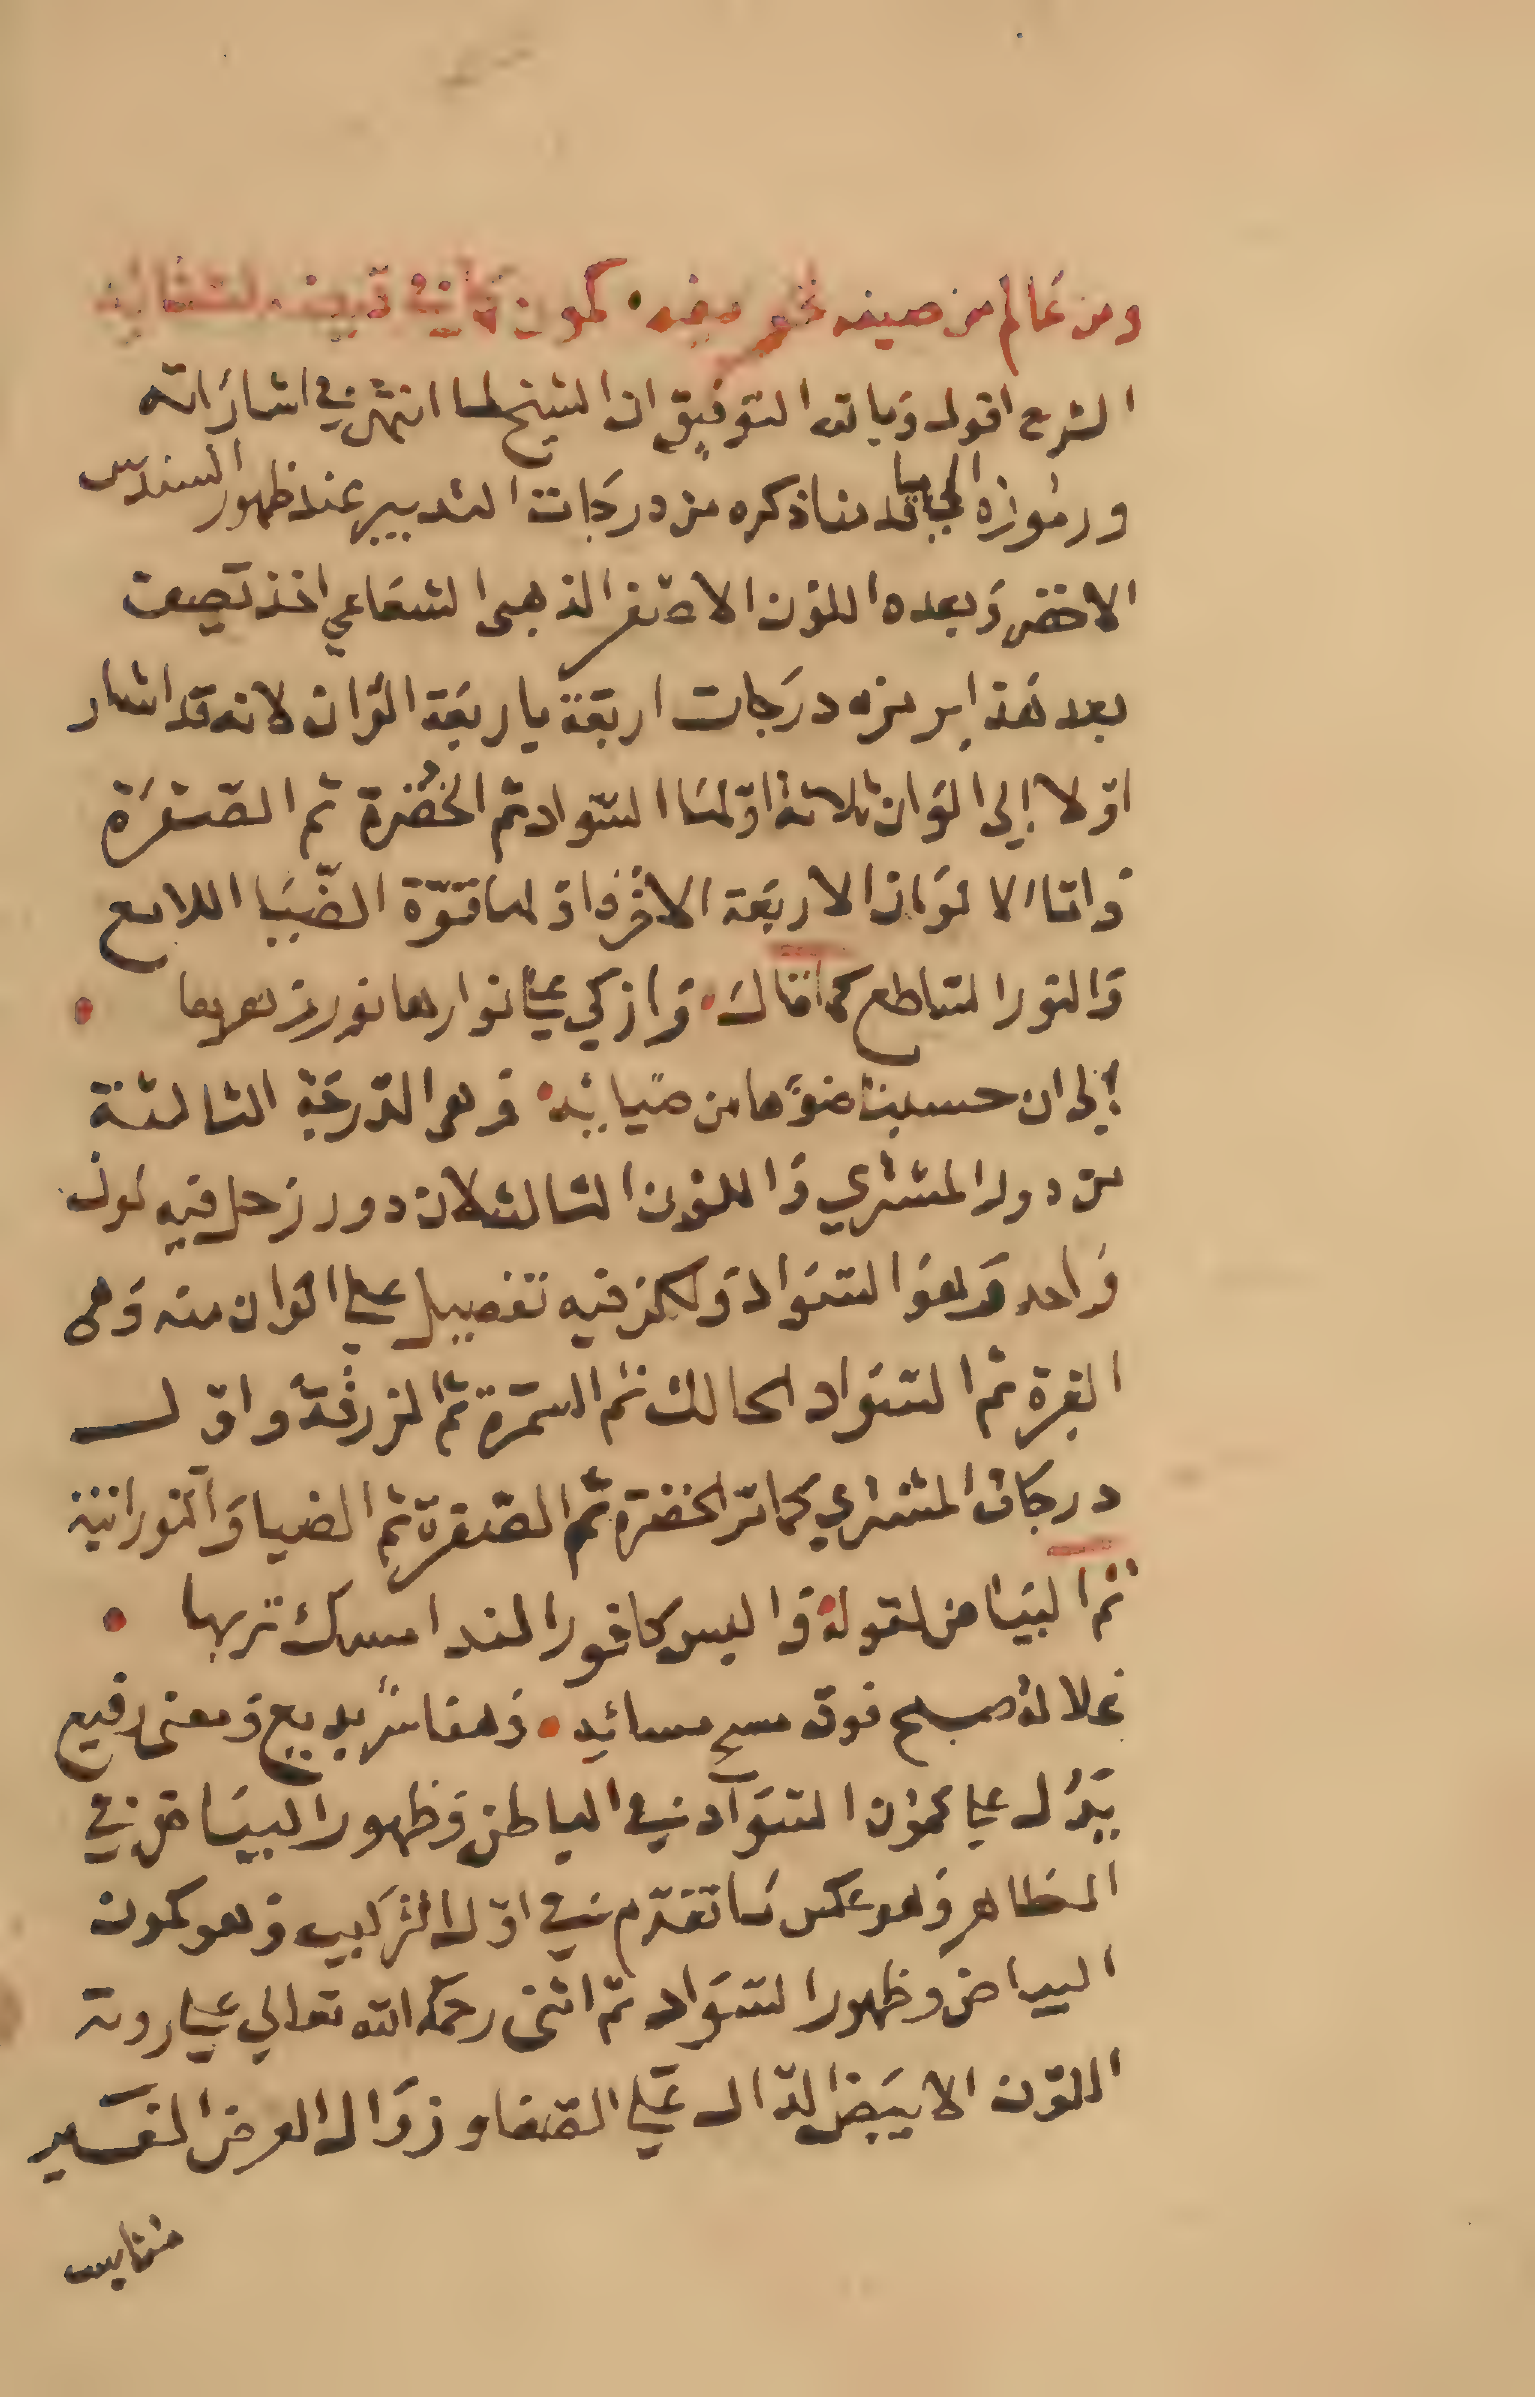 ومن عالم من صيفه نحو صفه • كمون
الشرح اقول وبالله التوفيق ان الشيخ لما انتهى في اشاراته
ورموزه الي ما قدمنا ذكره من درجات التدبير عند ظهور السندس
الاخضر وبعده اللون الاصفر الذهبي الشعاعي اخذ يصف
بعد هذا درجات اربعة باربعة الوان لانه قد اشار
اولا إلى الوان ثلاثة اولها السواد ثم الخضرة ثم الصفرة
واما الالوان الاربعة الاخر فاولها قوة الضيا اللامع
والنور الساطع كما قال • وازكي علي انوارها نور زهرها •
إلى ان حسبنا ضوءها من ضيائه • وهي الدرجة الثالثة
من دور المشتري واللون الثالث لان دور زحل فيه لون
واحد وهو السواد ولكن فيه تفصيل علي الوان منه وهي
الغبرة ثم السواد الحالك ثم السمرة ثم الزرقة واول
درجات المشتري كما تر الخضرة ثم الصفرة ثم الضيا والنورانية
ثم البياض لقوله • والبس كافور الندا مسك تربها •
غلالة صبح فوق مسح مسائه • وهنا سر بديع ومعنى رفيع
يدل علي كمون السواد في الباطن وظهور البياض في
الظاهر وهو عكس ما تقدم في اول التركيب وهو كمون
البياض وظهور السواد ثم اثنى رحمه الله تعالي علي رونة
اللون الابيض الدال علي الصفا وزوال العرض المفسد